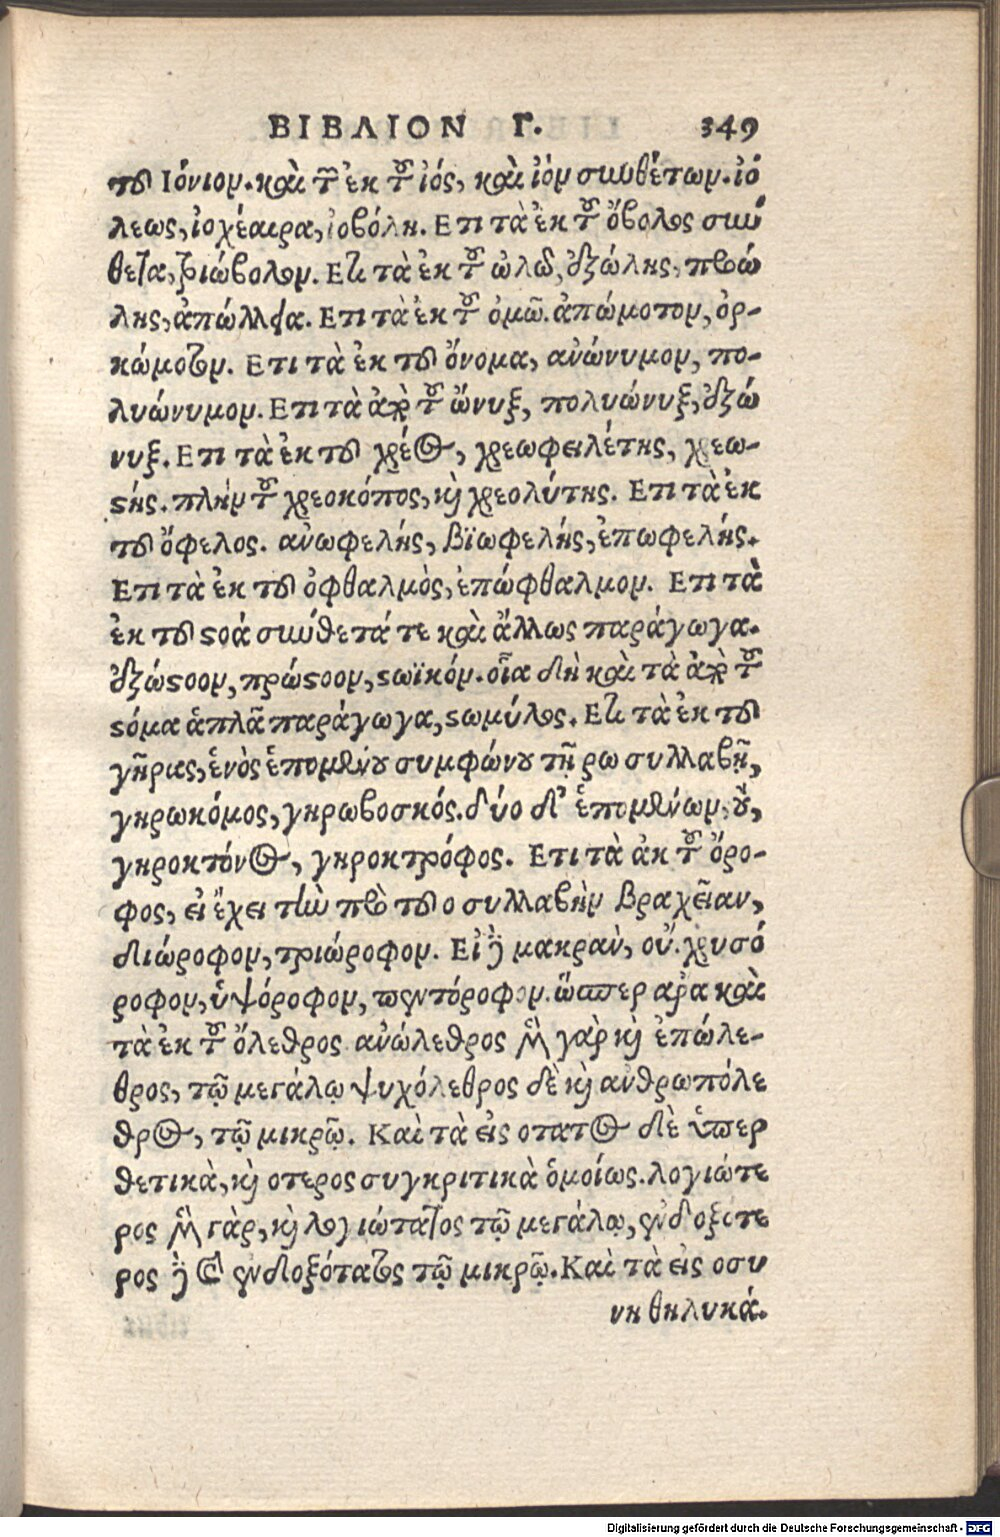 ΒΙΒΛΙΟΝ Γ. 349
τοῦ Ιόνιον. καὶ τῶν ἐκ τοῦ ἰός, καὶ ἰὸν συνθέτων. ἰό
λεως, ἰοχέαιρα, ἰοβόλη. Ετι τὰ ἐκ τοῦ ὄβολος σύν
θετα, τριώβολον. Ετι τὰ ἐκ τοῦ ὠλῶ, ἐξώλης, προώ
λης, ἀπώλλεια. Ετι τὰ ἐκ τοῦ ὀμῶ. ἀπώμοτον, ὁρ-
κώμοτον. Ετι τὰ ἐκ τοῦ ὄνομα, ἀνώνυμον, πο-
λυώνυμον. Ετι τὰ ἀπὸ τοῦ ὤνυξ, πολυώνυξ, ἐξώ
νυξ. Ετι τὰ ἐκ τοῦ χρέος, χρεωφειλέτης, χρεω-
στής. πλὴν τοῦ χρεοκόπος, καὶ χρεολύτης. Ετι τὰ ἐκ
τοῦ ὄφελος. ἀνωφελής, βϊωφελής, ἐπωφελής.
Ετι τὰ ἐκ τοῦ ὀφθαλμὸς, ἐπώφθαλμον. Ετι τὰ
ἐκ τοῦ στοά σιώθετά τε καὶ ἄλλως παράγωγα.
ἐξώστοον, πρώστοον, στωϊκόν. οἷα δὴ καὶ τὰ ἀπὸ τοῦ
στόμα ἁπλᾶ παράγωγα, στωμύλος. Ετι τὰ ἐκ τοῦ
γῆρας, ἑνὸς ἑπομένου συμφώνου τῇ ρω συλλαβῇ,
γηρωκόμος, γηρωβοσκός. δύο δ' ἑπομένων, οὔ,
γηροκτόνος, γηροκτρόφος. Ετι τὰ ἀκ τοῦ ὄρο-
φος, εἰ ἔχει τὴν πρὸ τοῦ ο συλλαβὴν βραχεῖαν,
διώροφον, τριώροφον. Εἰ δὲ μακρὰν, οὔ. χρυσό
ροφον, ὑψόροφον, πεντόροφον. ὥσπερ αῤα καὶ
τὰ ἐκ τοῦ ὄλεθρος ἀνώλεθρος μὲν γὰρ καὶ ἐπώλε-
θρος, τῷ μεγάλῳ ψυχόλεθρος δὲ καὶ ἀνθρωπόλε
θρος, τῷ μικρῷ. Καὶ τὰ εἰς οτατος δὲ ὑπερ
θετικὰ, καὶ οτερος συγκριτικὰ ὁμοίως. λογιώτε
ρος μὲν γὰρ, καὶ λογιώτατος τῷ μεγάλῳ, ἐνδοξότε
ρος δὲ καὶ ἐνδοξότατος τῷ μικρῷ. Καὶ τὰ εἰς οσυ
νη θηλυκά.
Digitalisierung gefördert durch die Deutsche Forschungsgemeinschaft - DFG